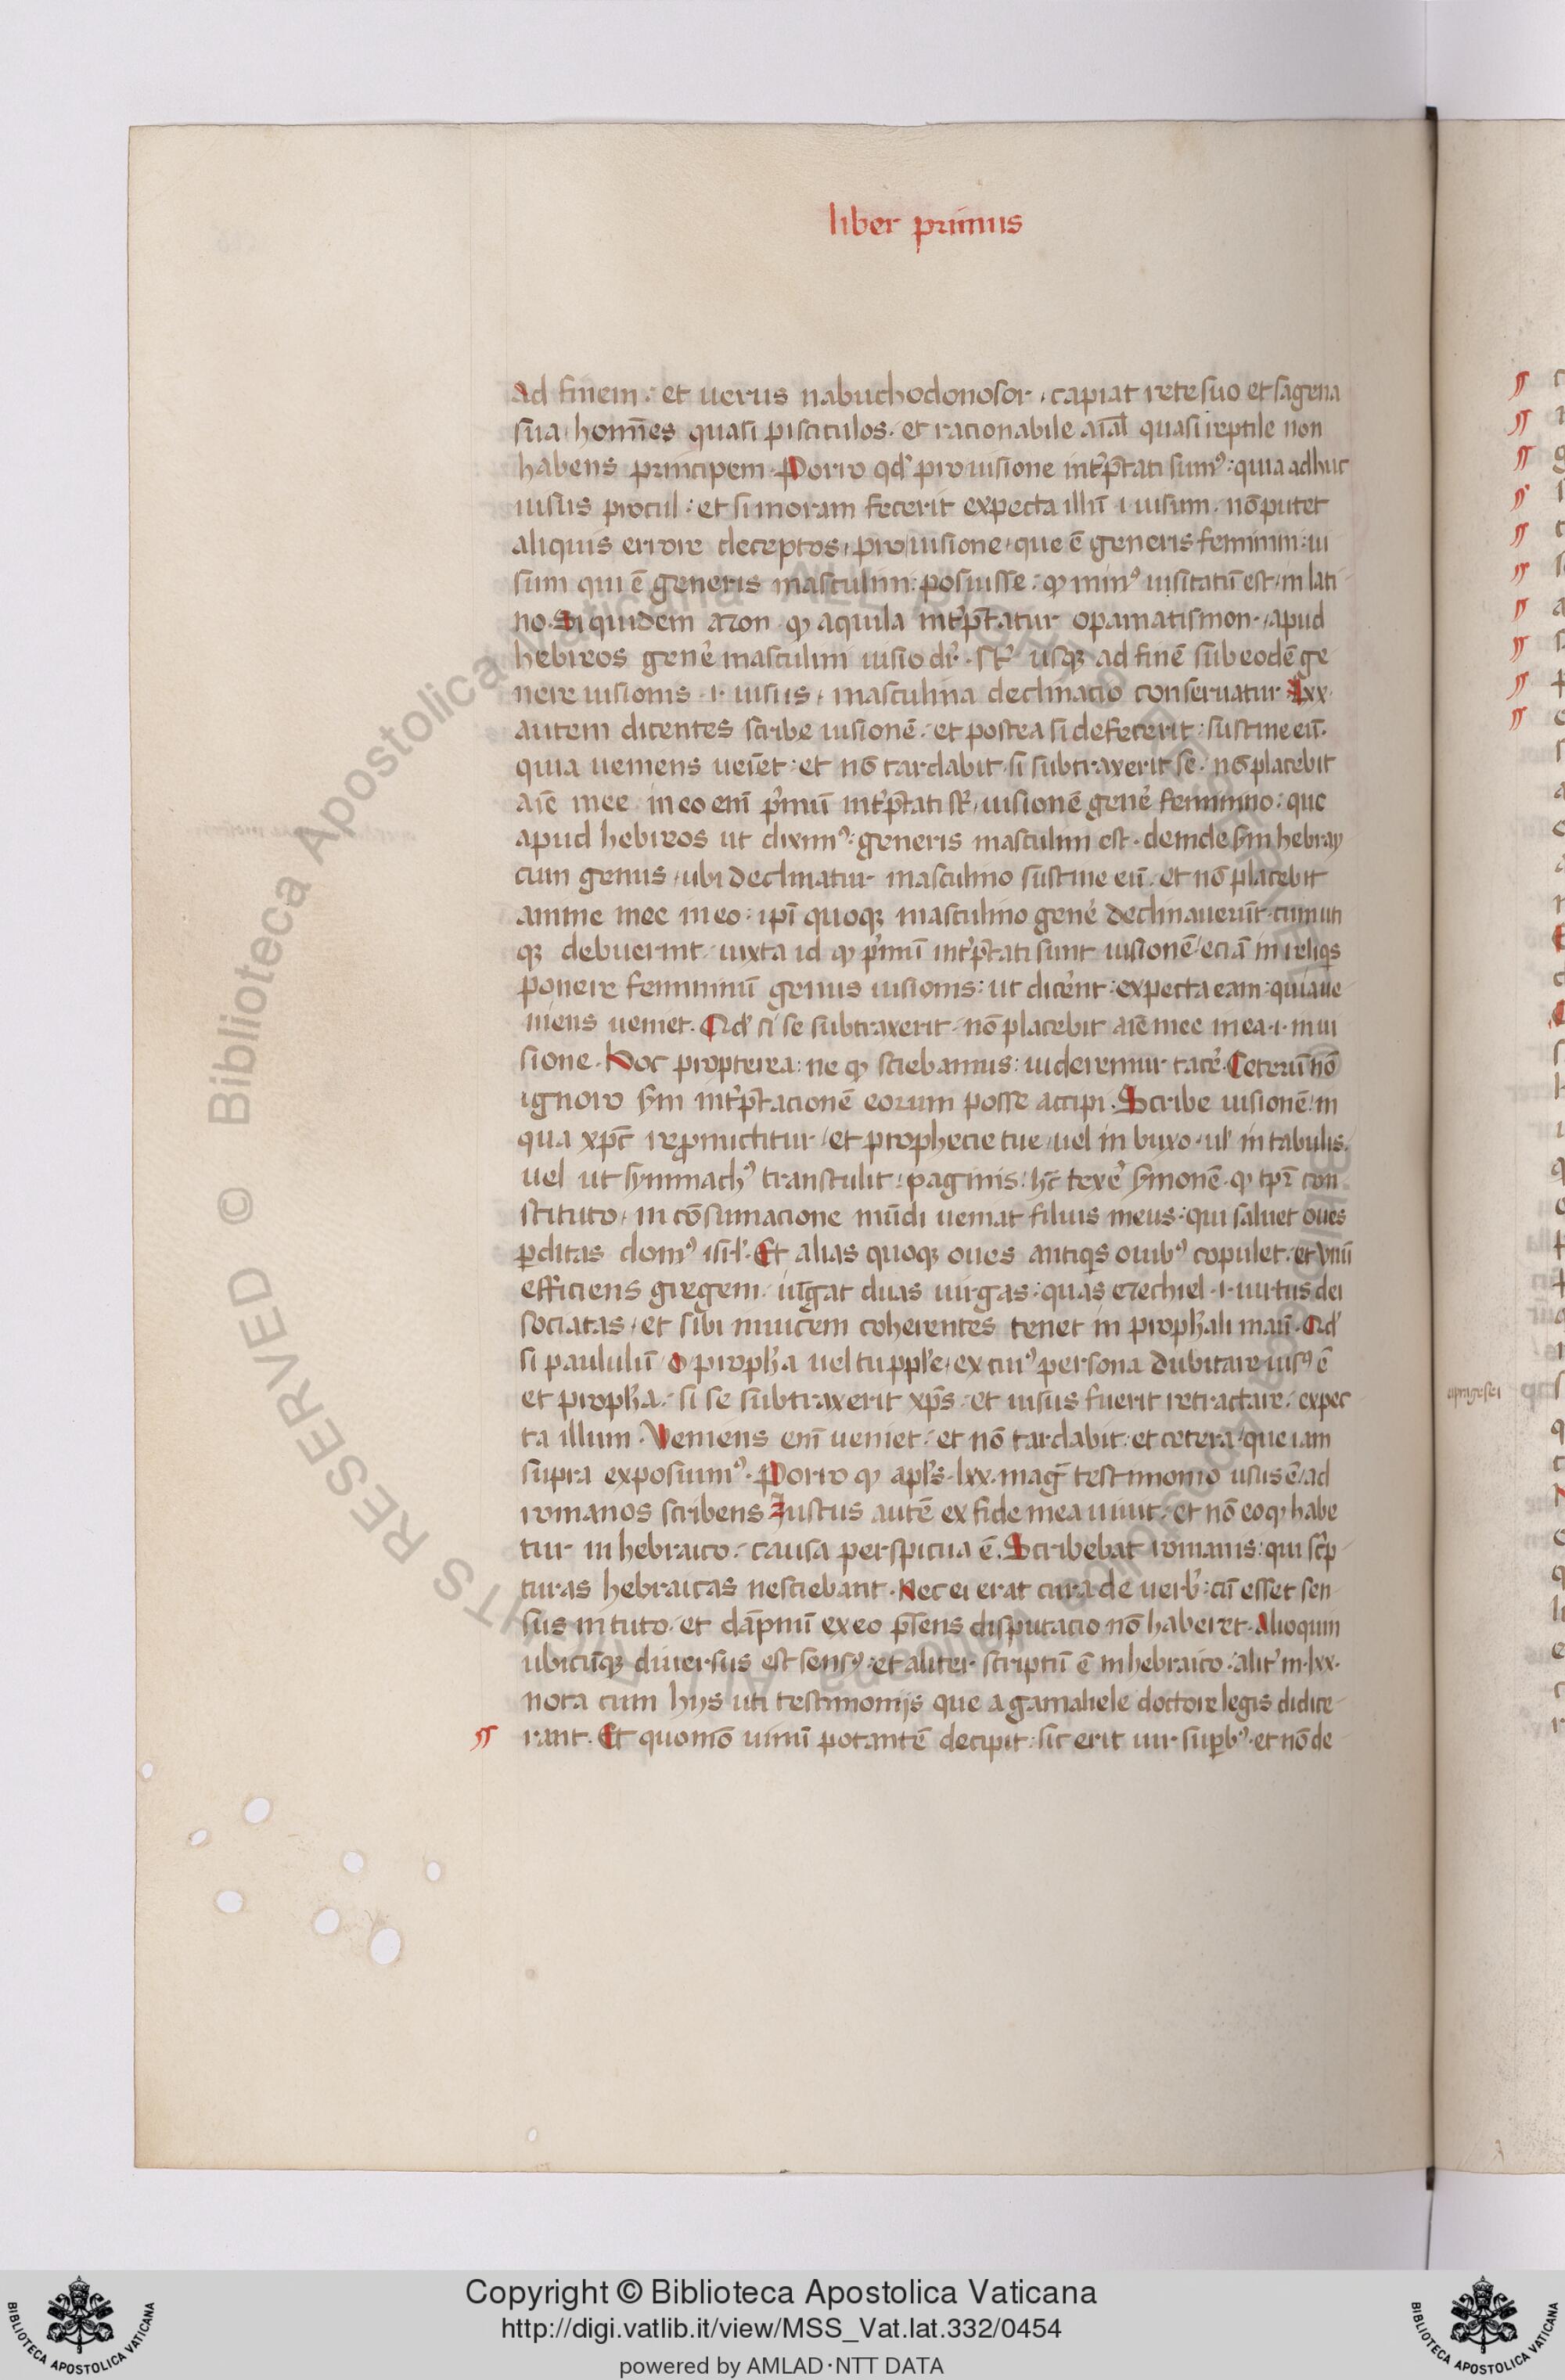 liber primus
ad finem : et uerus nabuchodonosor , capiat rete suo et sagena
sua , homēs quasi pisciculos . et racionabile aīal quasi reptile non
habens principem . Porro qd' pro uisione int'p̄tati sum9 : quia adhuc
uisus procul : et si moram fecerit expecta illū .i. uisum . nō putet
aliquis errore deceptos , pro uisione , que ē generis feminini : ui
sum qui ē generis masculini : posuisse : qd min9 usitatū est , in lati
no . Siquidem azon qd aquila int'p̄tatur opamatismon , apud
hebreos gene' masculini uisio dr' . sꝫ usqꝫ ad finē sub eodē ge
nere uisionis .i. uisus , masculina declinatio conseruatur . Lxx
autem dicentes scribe uisionē . et postea si defecerit : sustine eū .
quia ueniens ueīet : et nō tardabit . si subtraxerit se . nō placebit
aīe mee in eo enī p'mū int'p̄tati st , uisionē gene' feminino : que
apud hebreos ut dixim9 : generis masculini est . deinde s'm hebray
cum genus , ubi declinatur masculino sustine eū . et nō placebit
anime mee in eo : ip̄i quoqꝫ masculino gene' declinauerūt . cum uti
qꝫ debuerint . iuxta id qd p'mū int'p̄tati sunt uisionē eciā in reliqis
ponere femininū genus uisionis : ut dice'nt : expecta eam : quia ue
niens ueniet . Qd' si se subtraxerit . nō placebit aīe mee in ea .i. in ui
sione . Hoc propterea : ne qd sciebamus : uideremur tace' . Ceterū nō
ignoro s'm int'p̄tacionē eorum posse accipi . Scribe uisionē : in
qua xp̄c repromictitur , et prophecie tue , uel in buxo . ul' in tabulis .
uel ut symmach9 transtulit : paginis : hc̄ texe' s'monē . qd tp̄r con
stituto , in cōsumacione mūdi ueniat filius meus : qui saluet oues
p̱ditas dom9 isrl' . Et alias quoqꝫ oues antiqis ouib9 copulet . et vnū
efficiens gregem . iūgat duas uirgas : quas ezechiel .i. uirtus dei
sociatas , et sibi inuicem coherentes tenet in proph̄ali manū . Qd'
si paululū o proph̄a uel tu pple , ex cui9 persona dubitare uis9 ē
et proph̄a . si se subtraxerit xp̄s . et uisus fuerit retractare . expec
ta illum . Veniens enī ueniet . et nō tardabit . et cetera , que iam
supra exposuim9 . Porro qd apl's . lxx . maḡ testimonio usus ē , ad
romanos scribens Iustus autē ex fide mea uiuit . et nō eo qd habe
tur in hebraico . causa perspicua ē . Scribebat romanis : qui sc'p
turas hebraicas nesciebant . Nec ei erat cura de uerb' : cū esset sen
sus in tuto . et dāpnū ex eo p̄sens disputacio nō haberet . Alioquin
ubicūqꝫ diuersus est sens9 . et aliter scriptū ē in hebraico . alit' in . lxx .
nota cum hys uti testimonijs que a gamaliele doctore legis didice
rant . Et quomō uinū potantē decipit . sic erit uir sup̱b9 . et nō de
Copyright © Biblioteca Apostolica Vaticana
http://digi.vatlib.it/view/MSS_Vat.lat.332/0454
powered by AMLAD·NTT DATA